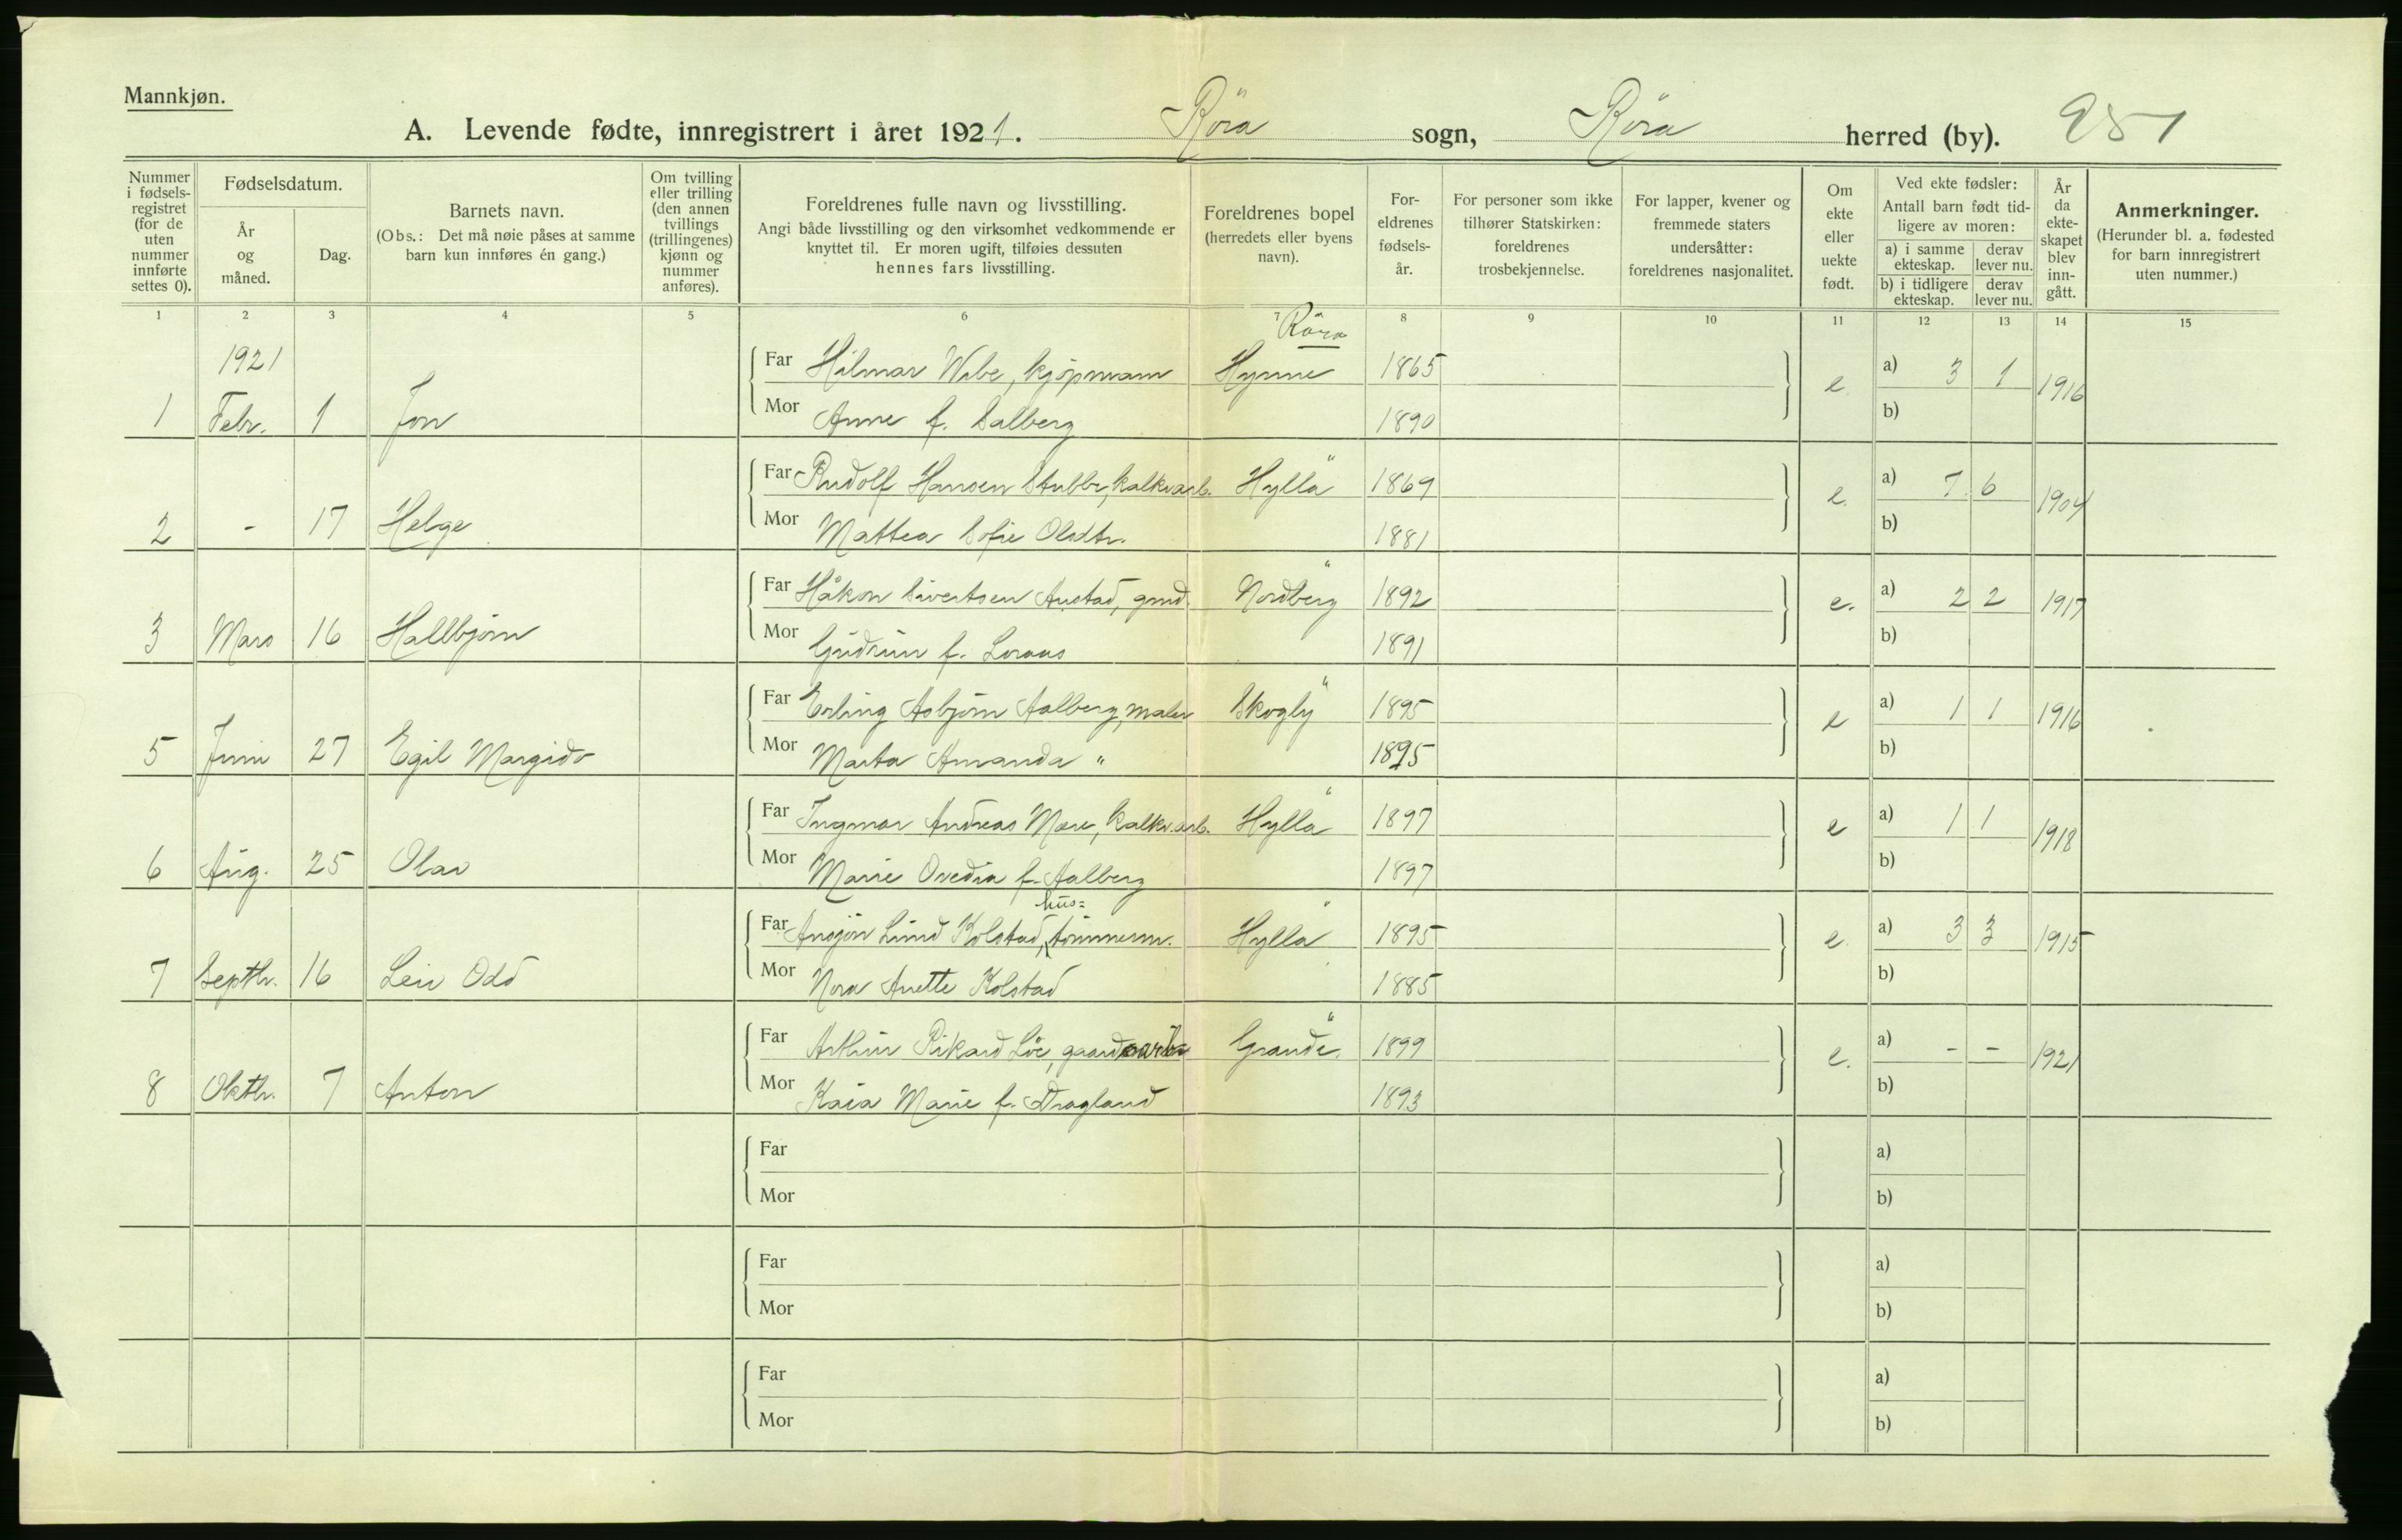 Mannkjøn.
A. Levende fødte, innregistrert i året 1921. Röra sogn, Röra herred (by). 951
Nummer i fødsels-registret (for de uten nummer innførte settes 0).
Fødselsdatum.
År og måned.
Dag.
Barnets navn.
(Obs.: Det må nøie påses at samme barn kun innføres én gang.)
Om tvilling eller trilling (den annen tvillings (trillingenes) kjønn og nummer anføres).
Foreldrenes fulle navn og livsstilling.
Angi både livsstilling og den virksomhet vedkommende er knyttet til. Er moren ugift, tilføies dessuten hennes fars livsstilling.
Foreldrenes bopel (herredets eller byens navn).
For-eldrenes fødsels-år.
For personer som ikke tilhører Statskirken: foreldrenes trosbekjennelse.
For lapper, kvener og fremmede staters undersåtter: foreldrenes nasjonalitet.
Om ekte eller uekte født.
Ved ekte fødsler: Antall barn født tid-ligere av moren:
a) i samme ekteskap.
derav lever nu.
b) i tidligere ekteskap.
derav lever nu.
År da ekte-skapet blev inn-gått.
Anmerkninger.
(Herunder bl. a. fødested for barn innregistrert uten nummer.)
1 2 3 4 5 6 7 8 9 10 11 12 13 14 15
Röra
1921
Far Hilmar Wibe, kjøpmann Hynne 1865 e. a) 3 1 1916
1 Febr. 1 Jon Mor Anne f. Salberg 1890 b)
Far Rudolf Hansen Stubbe, kalkv.arb. Hylla " 1869 e. a) 7 6 1904
2 - 17 Helge Mor Mattea Sofie Olsdtr. 1881 b)
Far Håkon Sivertsen Austad, gmd. Nordberg " 1892 e. a) 2 2 1917
3 Mars 16 Hallbjørn Mor Gudrun f. Loraas 1891 b)
Far Erling Asbjørn Aalberg, maler Skogly " 1895 e a) 1 1 1916
5 Juni 27 Egil Margido Mor Marta Amanda " 1895 b)
Far Ingmar Andreas Mære, kalkv.arb. Hylla " 1897 e a) 1 1 1918
6 Aug. 25 Olav Mor Marie Ovedia f. Aalberg 1897 b)
hus=
Far Ansgön Lund Kolstad, tömmerm. Hylla " 1895 e. a) 3 3 1915
7 Septbr. 16 Leiv Odd Mor Nora Anette Kolstad 1885 b)
Far Arthur Rikard Löe, gaardsarb. Grande " 1899 e. a) - - 1921
8 Oktbr. 7 Anton Mor Kaia Marie f. Dragland 1893 b)
Far a)
Mor b)
Far a)
Mor b)
Far a)
Mor b)